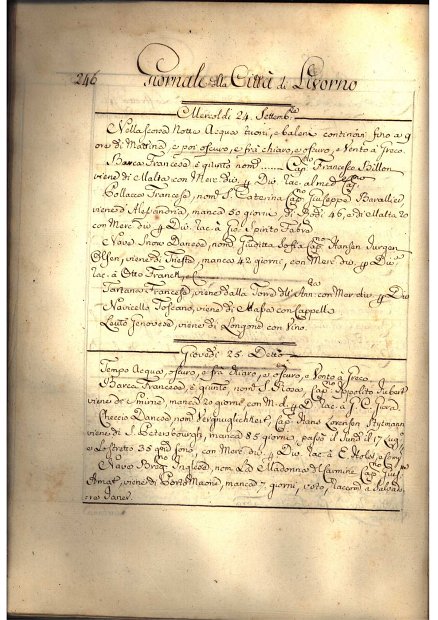 246 Giornale della Città di Livorno
Mercoldì 24. Settembre
Nella scorsa Notte Acqua tuoni, e baleni continui fino a 9
ore di Mattina, e poi oscuro, e frà chiaro, e oscuro, e Vento à Greco.
Barca Francesa è giunto nom. ...... Capno Francesco Billon
viene di Malta con Merc div p Div rac. al med Capno
Pollacca Francesa, nom S. Caterina Capno Giuseppe Barallier
viene d'Alesandria, manca 50 giorni, di Rodi 46, e di Malta 20
con Merc div p Div. rac. à Gio Spirito Fabre
Nave Snow Danesa, nom Giuditta Sofia Capno Hansen Jurgen
Olsen, viene di Trieste, manca 42 giorni, con Merc div p Div
rac. à Otto Franck, e C
Tartana Francesa, viene dalla Torre dell'Ann. con Merc div p Div
Navicello Toscano, viene di Massa con Cappelle
Leuto Genovese, viene di Longone con Vino.
Giovedì 25. Detto
Tempo Acqua, oscuro, e frà chiaro, e oscuro, e Vento à Greco
Barca Francesa, è giunto nom S. Rosa Capno Ippolito Jubert
viene di Smirne, manca 20 giorni con M. d. p D. rac. à
Checcio Danese, nom Vergnuglichheit Capno Hans Lorensen
viene di S. Petersbourgh, manca 85 giorni, passò il Sund il 17 Lugo
e lo Stretto 35 gni sono, con Merc div p Div rac. à
Nave Brigno Inglese, nom La Madonna del Carmine Capno
Amat, viene di Porto Maone, manca 7 giorni, voto, raccom à Salvatore